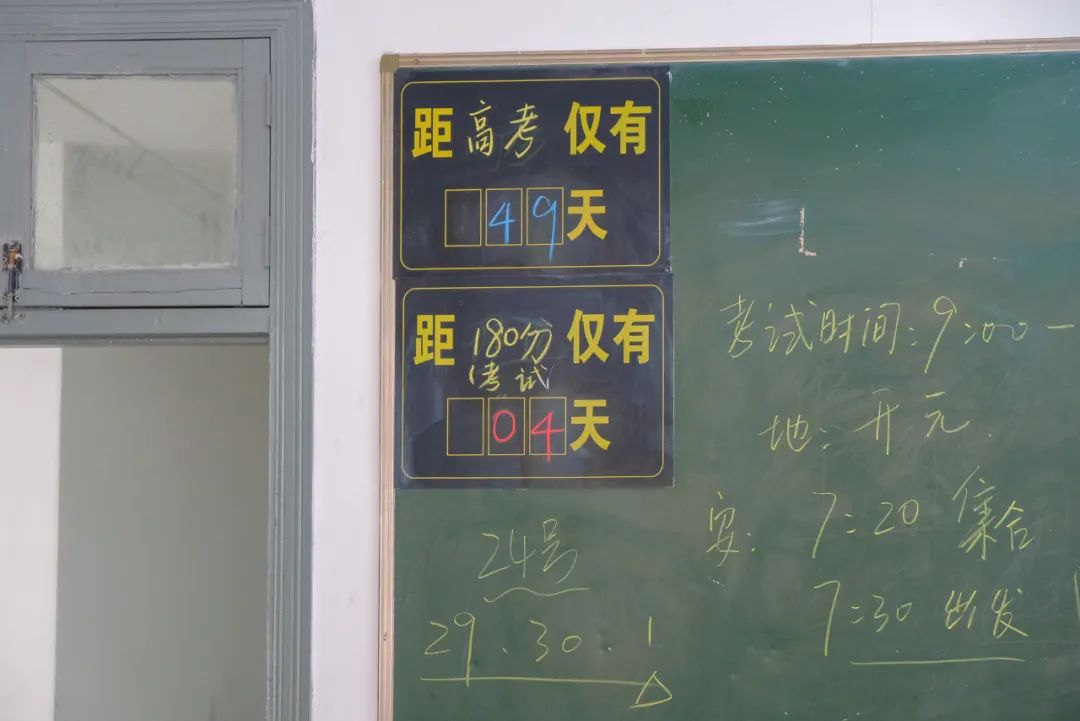 距高考仅有
49天
距180分考试仅有
04天
考试时间:9:00—
地:开元.
安: 7:20 集合
7:30 出发
24号
29、30、1